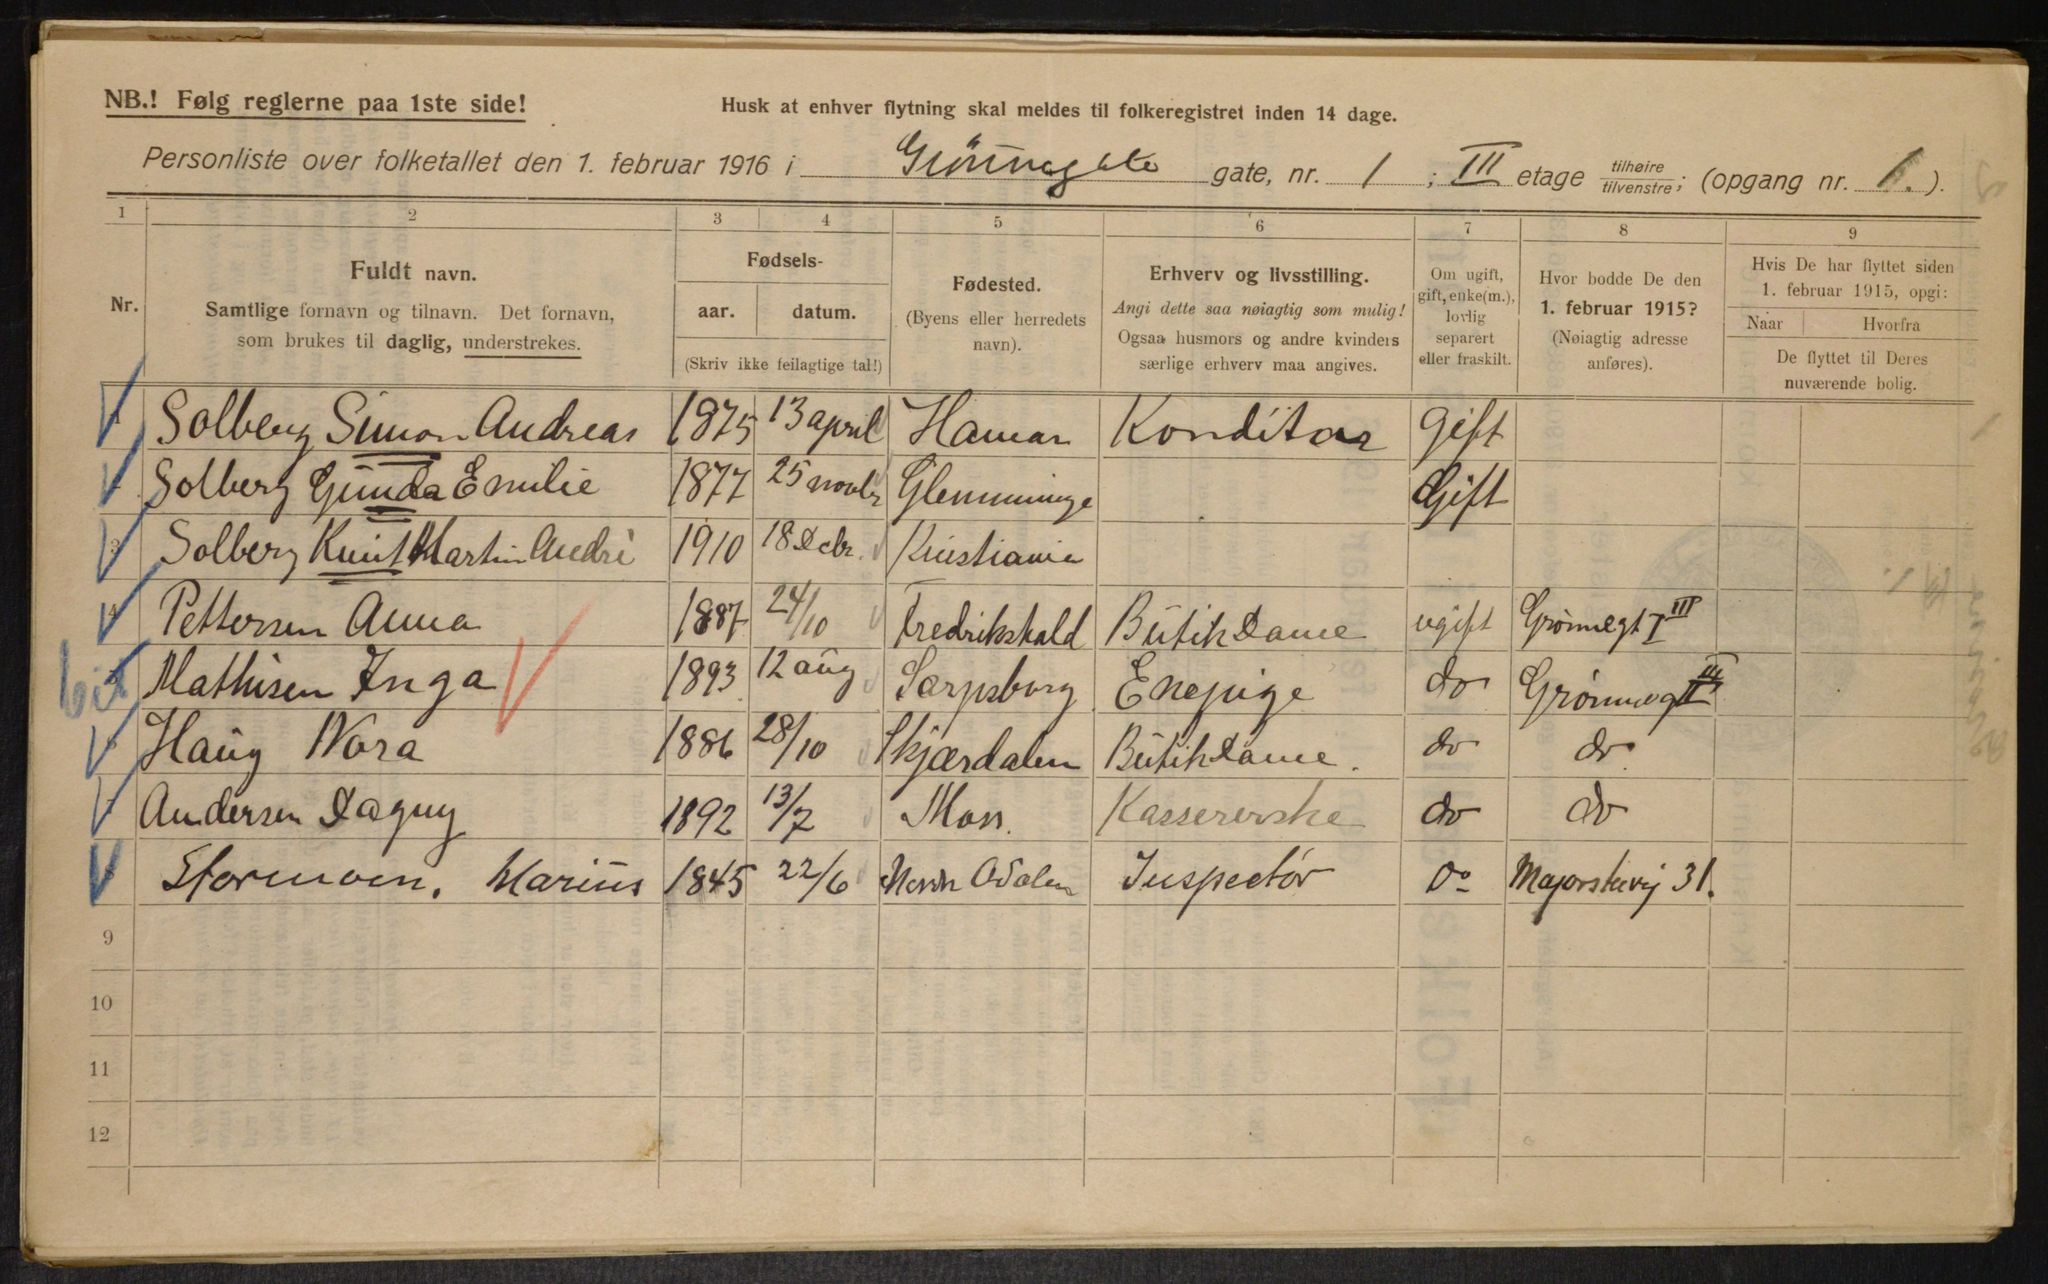 NB.! Følg reglerne paa 1ste side!
Husk at enhver flytning skal meldes til folkeregistret inden 14 dage.
Personliste over folketallet den 1. februar 1916 i Grönnegate gate, nr. 1 ; III etage tilhøire tilvenstre; (opgang nr. 1. ).
1 2 3 4 5 6 7 8 9
Nr.
Fuldt navn.
Samtlige fornavn og tilnavn. Det fornavn,
som brukes til daglig, understrekes.
Fødsels-
aar. datum.
(Skriv ikke feilagtige tal!)
Fødested.
(Byens eller herredets
navn).
Erhverv og livsstilling.
Angi dette saa nøiagtig som mulig!
Ogsaa husmors og andre kvinders
særlige erhverv maa angives.
Om ugift,
gift, enke(m.),
lovlig
separert
eller fraskilt.
Hvor bodde De den
1. februar 1915?
(Nøiagtig adresse
anføres).
Hvis De har flyttet siden
1. februar 1915, opgi:
Naar Hvorfra
De flyttet til Deres
nuværende bolig.
Solberg Simon Andreas 1875 13 april Hamar Konditor gift
Solberg Gunda Emilie 1877 25 novbr Glemminge Gift
3 Solberg Knut Martin André 1910 18 Dcbr. Kristiania
4 Pettersen Anna 1887 24/10 Fredrikshald Butik Dame ugift Grønnegt I III
Mathisen Inga 1893 12 aug Sarpsborg Enepige do Grønnegt III
Haug Nora 1886 28/10 Skjærdalen Butik Dame. do do
Andersen Dagny 1892 13/7 Moss. Kassererske do do
Stormoen. Marius 1845 22/6 Nord Odalen Inspectör Do Majorstuvej 31.
9
10
11
12